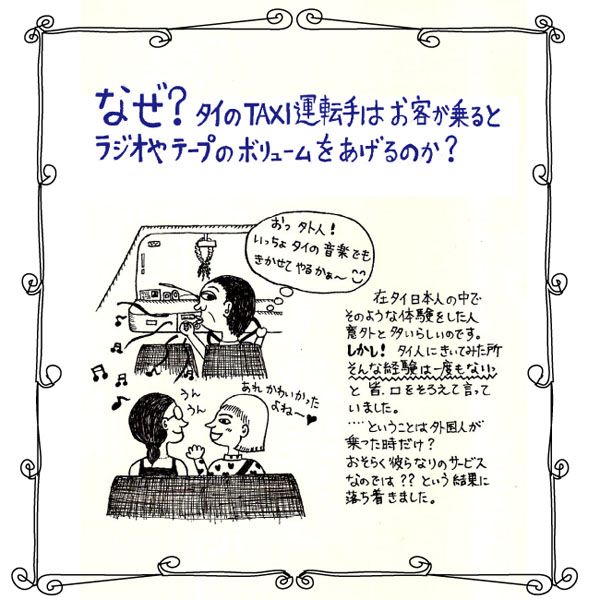 なぜ? タイのTAXI運転手はお客が乗ると
ラジオやテープのボリュームをあげるのか?
おっ 外人!
いっちょ タイの音楽でも
きかせてやるかぁ〜
うん
うん
あれ かわいかった
よね〜♥
在タイ日本人の中で
そのような体験をした人
意外と多いらしいのです。
しかし! タイ人にきいてみた所
そんな経験は一度もないっ
と 皆、口をそろえて言って
いました。
‥‥ということは外国人が
乗った時だけ?
おそらく彼らなりのサービス
なのでは?? という結果に
落ち着きました。